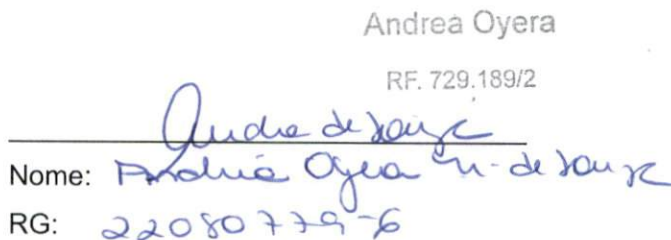 Andrea Oyera
RF. 729.189/2
Andrea de Souza
Nome: Andréa Oyera M. de Souza
RG: 22080779-6